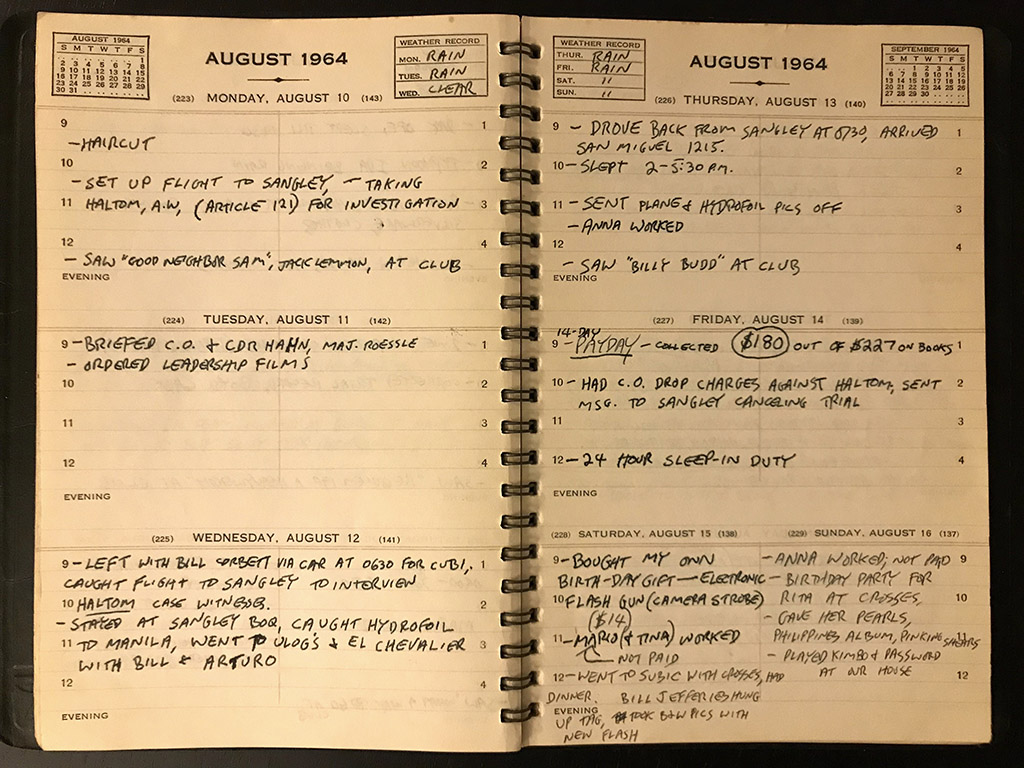 AUGUST 1964
S M T W T F S
1
2 3 4 5 6 7 8
9 10 11 12 13 14 15
16 17 18 19 20 21 22
23 24 25 26 27 28 29
30 31
AUGUST 1964
WEATHER RECORD
MON. RAIN
TUES. RAIN
WED. CLEAR
(223) MONDAY, AUGUST 10 (143)
9 1
- HAIRCUT
10 2
- SET UP FLIGHT TO SANGLEY, - TAKING
11 HALTOM, A.W, (ARTICLE 121) FOR INVESTIGATION 3
12 4
- SAW "GOOD NEIGHBOR SAM", JACK LEMMON, AT CLUB
EVENING
(224) TUESDAY, AUGUST 11 (142)
9 - BRIEFED C.O. & CDR HAHN, MAJ. ROESSLE 1
- ORDERED LEADERSHIP FILMS
10 2
11 3
12 4
EVENING
(225) WEDNESDAY, AUGUST 12 (141)
9 - LEFT WITH BILL CORBETT VIA CAR AT 0630 FOR CUBI, 1
CAUGHT FLIGHT TO SANGLEY TO INTERVIEW
10 HALTOM CASE WITNESSES. 2
- STAYED AT SANGLEY BOQ, CAUGHT HYDROFOIL
11 TO MANILA, WENT TO ULOG'S & EL CHEVALIER 3
WITH BILL & ARTURO
12 4
EVENING
WEATHER RECORD
THUR. RAIN
FRI. RAIN
SAT. "
SUN. "
AUGUST 1964
SEPTEMBER 1964
S M T W T F S
1 2 3 4 5
6 7 8 9 10 11 12
13 14 15 16 17 18 19
20 21 22 23 24 25 26
27 28 29 30
(226) THURSDAY, AUGUST 13 (140)
9 - DROVE BACK FROM SANGLEY AT 0730, ARRIVED 1
SAN MIGUEL 1215.
10 - SLEPT 2-5:30 PM. 2
11 - SENT PLANE & HYDROFOIL PICS OFF 3
- ANNA WORKED
12 4
- SAW "BILLY BUDD" AT CLUB
EVENING
(227) FRIDAY, AUGUST 14 (139)
14-DAY
9 - PAYDAY - COLLECTED $180 OUT OF $227 ON BOOKS 1
10 - HAD C.O. DROP CHARGES AGAINST HALTOM, SENT 2
MSG. TO SANGLEY CANCELING TRIAL
11 3
12 - 24 HOUR SLEEP-IN DUTY 4
EVENING
(228) SATURDAY, AUGUST 15 (138)
9 - BOUGHT MY OWN
BIRTH-DAY GIFT - ELECTRONIC
10 FLASH GUN (CAMERA STROBE)
($14)
11 - MARIO (& TINA) WORKED
NOT PAID
12 - WENT TO SUBIC WITH CROSSES, HAD
DINNER. BILL JEFFERIES HUNG
EVENING
UP TAG, TOOK B&W PICS WITH
NEW FLASH
(229) SUNDAY, AUGUST 16 (137)
- ANNA WORKED; NOT PAID 9
- BIRTHDAY PARTY FOR
RITA AT CROSSES, 10
- GAVE HER PEARLS,
PHILIPPINES ALBUM, PINKING SHEARS 11
- PLAYED KIMBO & PASSWORD
AT OUR HOUSE 12